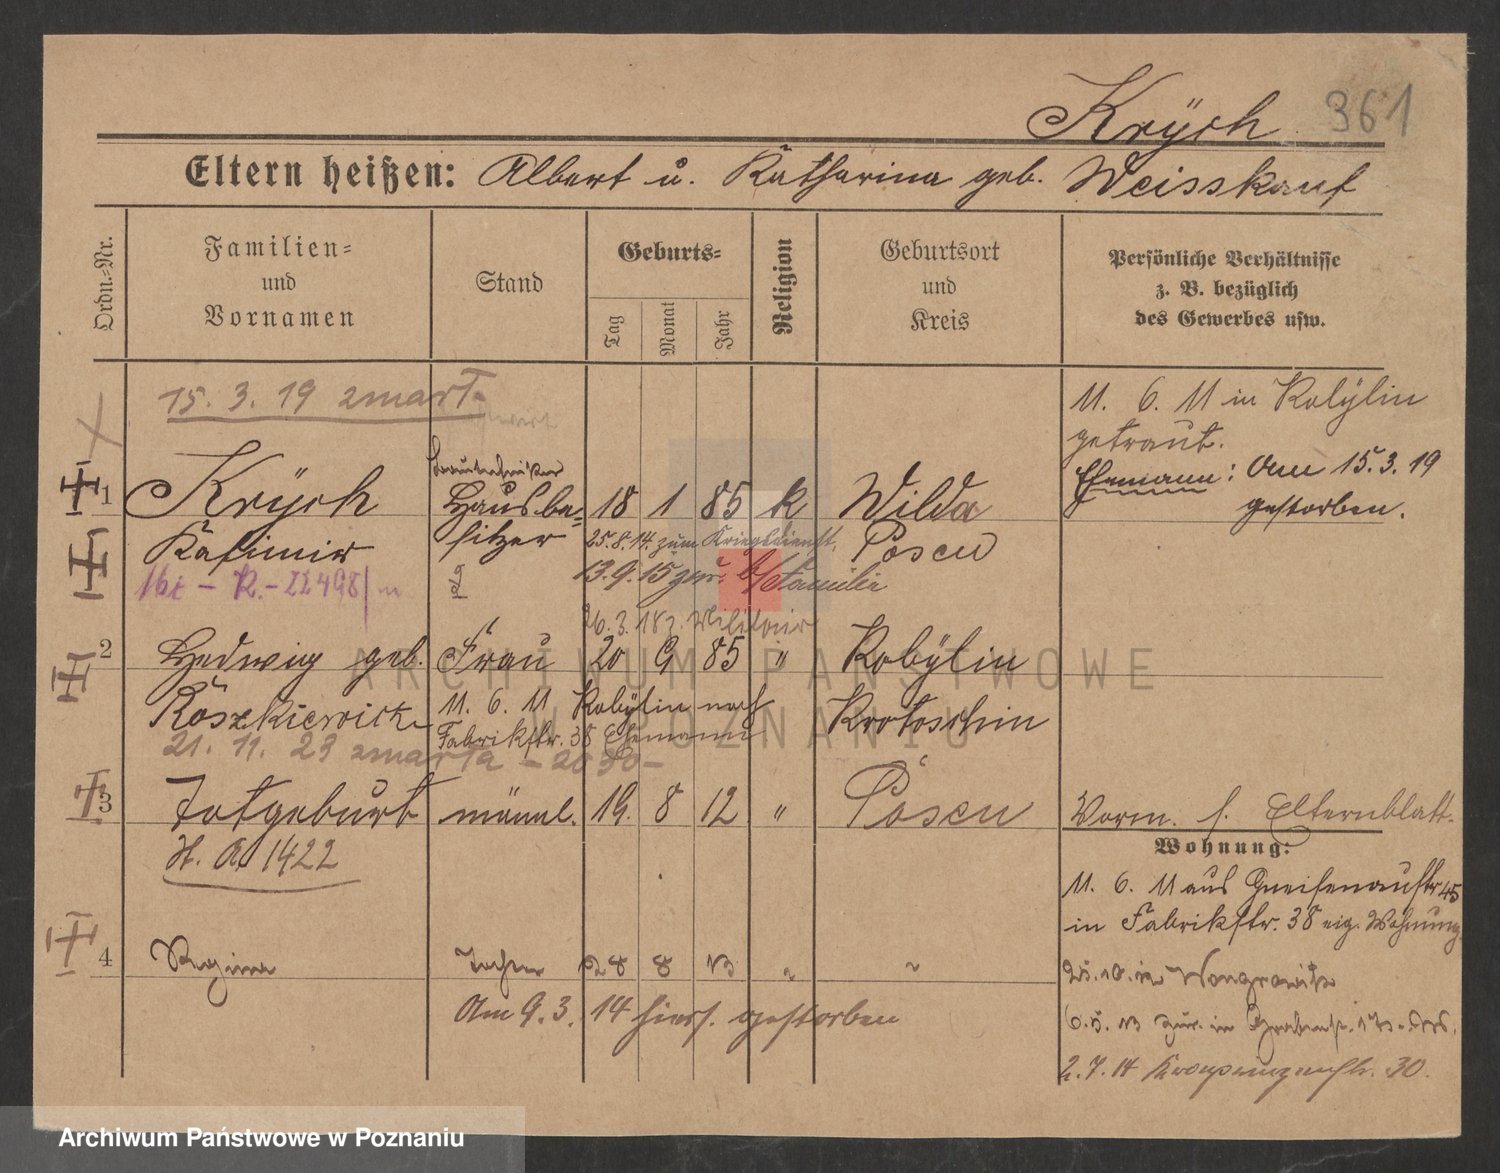 Krÿch 361
Eltern heißen: Albert u. Katharina geb. Weisskauf
Ordn.-Nr.
Familien=
und
Vornamen
Stand
Geburts=
Tag
Monat
Jahr
Religion
Geburtsort
und
Kreis
Persönliche Verhältnisse
z. B. bezüglich
des Gewerbes usw.
15. 3. 19 zmarł
11. 6. 11 in Kobÿlin
getraut.
Ehemann: Am 15.3.19
gestorben.
1 Krÿch Hausbe= 18 1 85 k Wilda
Kasimir sitzer Posen
25.8.14. zum Kriegsdienst,
13.9.15 zur. b/Familie
26.3.18 z. Militair
2 Hedwig geb. Frau 20 9 85 " Kobÿlin
Roszkiewicz Krotoschin
11. 6. 11 Kobÿlin nach
Fabrikstr. 38 Ehemann
21. 11. 23 zmarła
3 Totgeburt männl. 19. 8 12 " Posen
H. A. 1422
Vorm. s. Elternblatt.
Wohnung:
11. 6. 11 aus Gneisenaustr 45
in Fabrikstr. 38 eig. Wohnung.
4 Regina Tochter 28 8 13 " "
Am 9.3.14 hiers. gestorben
25.10. in Wongrowitz
2.7.14 Kronprinzenstr. 30.
ARCHIWUM PAŃSTWOWE
W POZNANIU
Archiwum Państwowe w Poznaniu